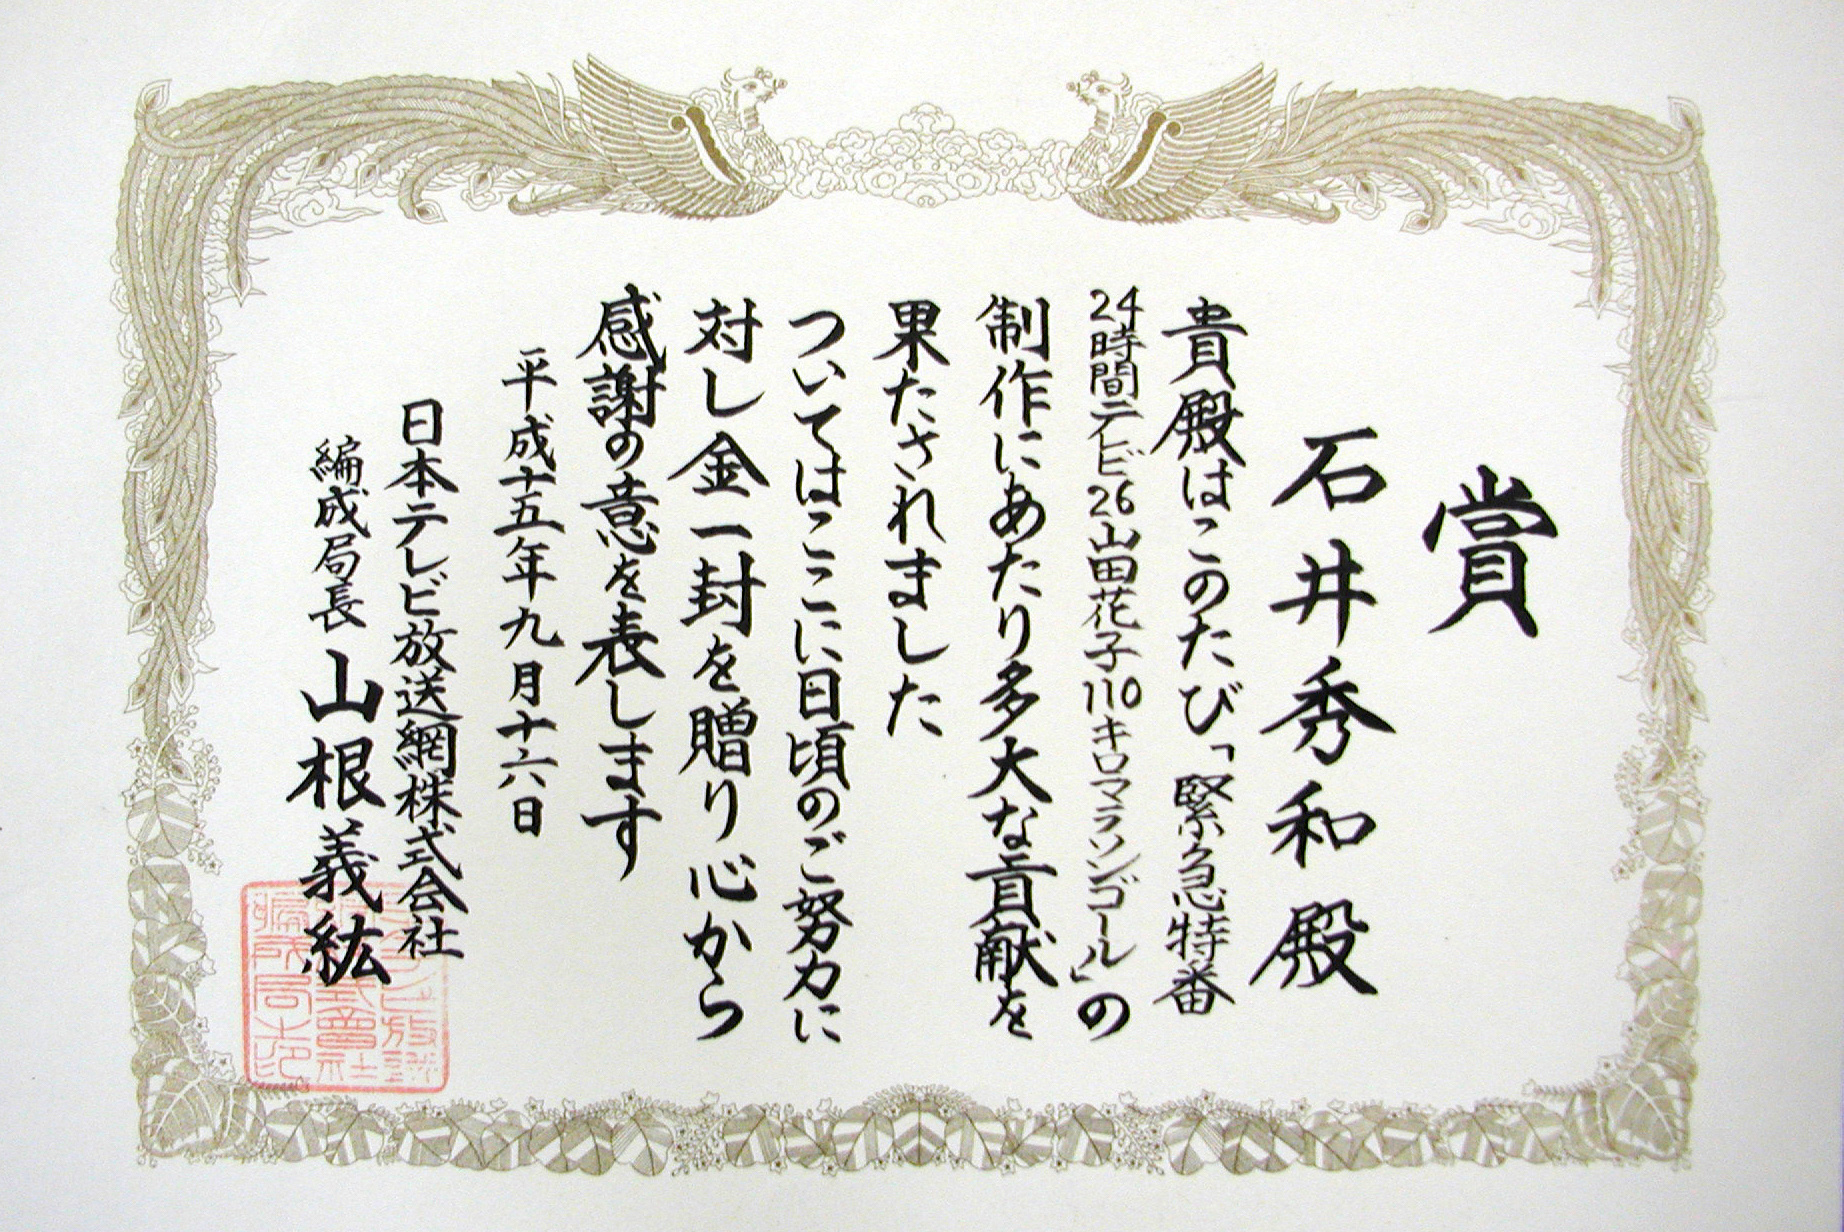 賞
石井秀和殿
貴殿はこのたび「緊急特番
24時間テレビ26山田花子110キロマラソンゴール」の
制作にあたり多大な貢献を
果たされました
ついてはここに日頃のご努力に
対し金一封を贈り心から
感謝の意を表します
平成十五年九月十六日
日本テレビ放送網株式会社
編成局長 山根義紘